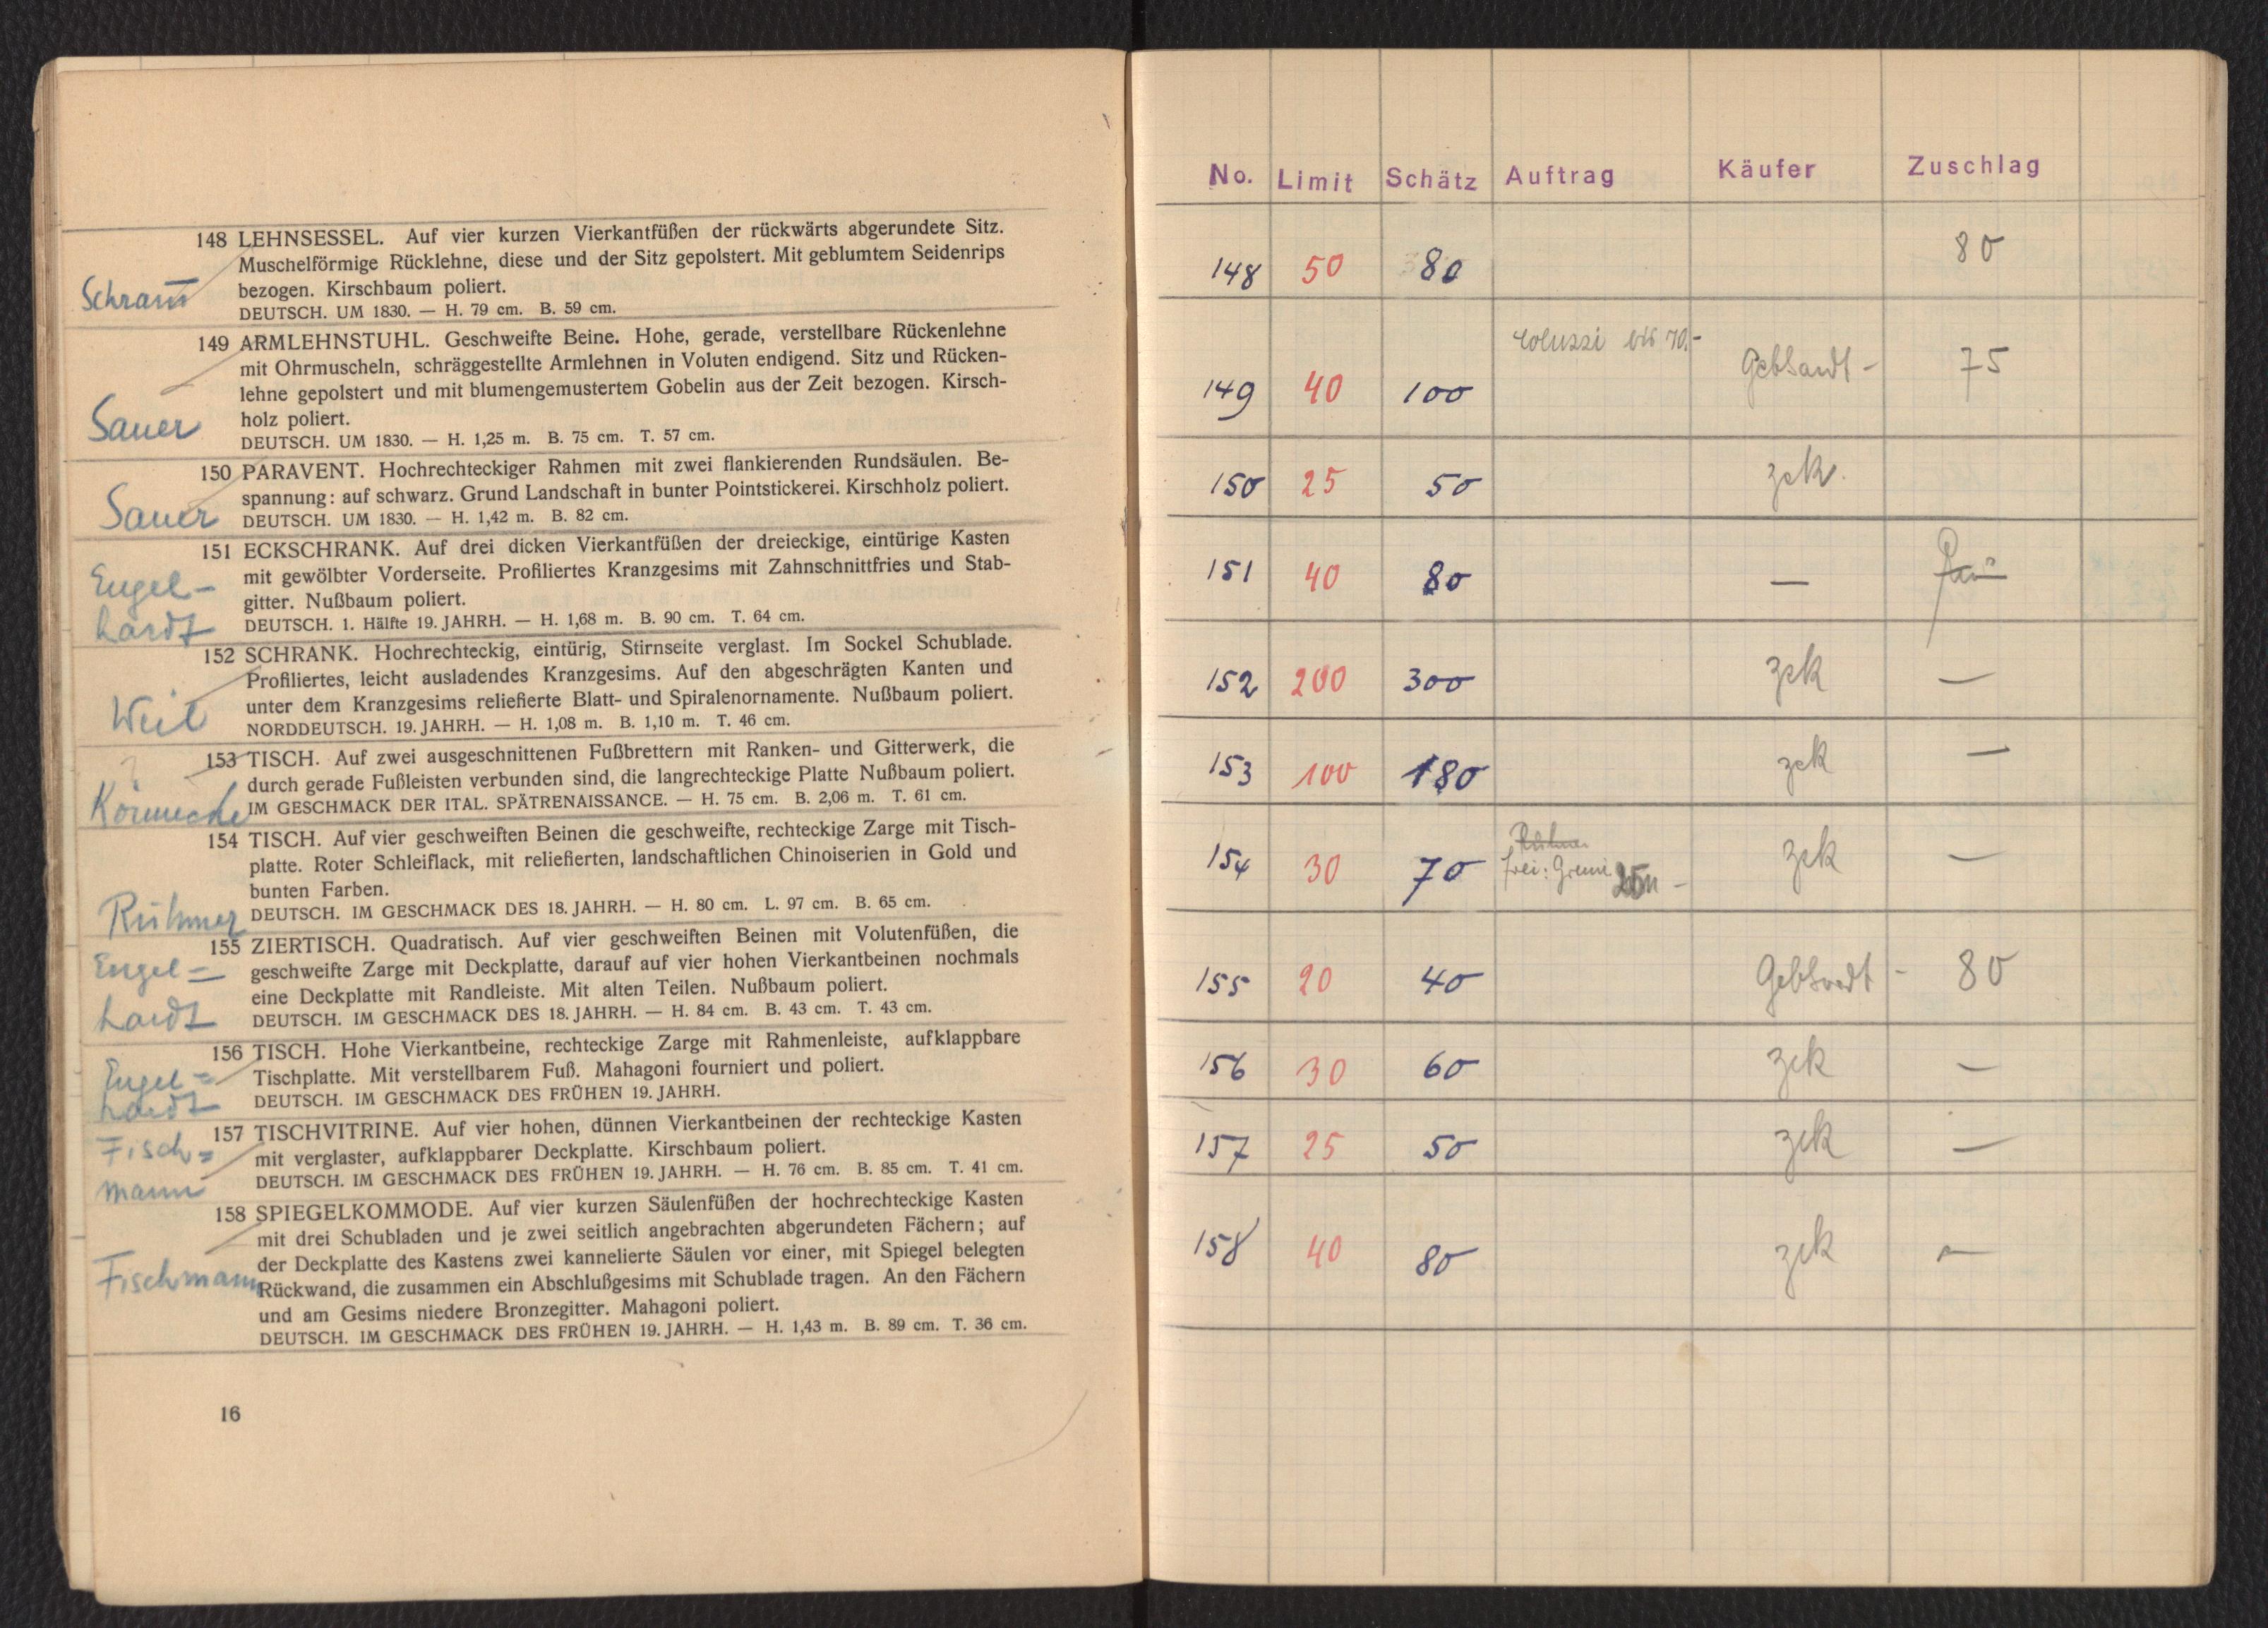 148 LEHNSESSEL. Auf vier kurzen Vierkantfüßen der rückwärts abgerundete Sitz.
Muschelförmige Rücklehne, diese und der Sitz gepolstert. Mit geblumtem Seidenrips
bezogen. Kirschbaum poliert.
Schram̄
DEUTSCH. UM 1830. — H. 79 cm. B. 59 cm.
149 ARMLEHNSTUHL. Geschweifte Beine. Hohe, gerade, verstellbare Rückenlehne
mit Ohrmuscheln, schräggestellte Armlehnen in Voluten endigend. Sitz und Rücken-
lehne gepolstert und mit blumengemustertem Gobelin aus der Zeit bezogen. Kirsch-
holz poliert.
Sauer
DEUTSCH. UM 1830. — H. 1,25 m. B. 75 cm. T. 57 cm.
150 PARAVENT. Hochrechteckiger Rahmen mit zwei flankierenden Rundsäulen. Be-
spannung: auf schwarz. Grund Landschaft in bunter Pointstickerei. Kirschholz poliert.
Sauer
DEUTSCH. UM 1830. — H. 1,42 m. B. 82 cm.
151 ECKSCHRANK. Auf drei dicken Vierkantfüßen der dreieckige, eintürige Kasten
mit gewölbter Vorderseite. Profiliertes Kranzgesims mit Zahnschnittfries und Stab-
gitter. Nußbaum poliert.
Engel-
hardt
DEUTSCH. 1. Hälfte 19. JAHRH. — H. 1,68 m. B. 90 cm. T. 64 cm.
152 SCHRANK. Hochrechteckig, eintürig, Stirnseite verglast. Im Sockel Schublade.
Profiliertes, leicht ausladendes Kranzgesims. Auf den abgeschrägten Kanten und
unter dem Kranzgesims reliefierte Blatt- und Spiralenornamente. Nußbaum poliert.
Weil
NORDDEUTSCH. 19. JAHRH. — H. 1,08 m. B. 1,10 m. T. 46 cm.
153 TISCH. Auf zwei ausgeschnittenen Fußbrettern mit Ranken- und Gitterwerk, die
durch gerade Fußleisten verbunden sind, die langrechteckige Platte Nußbaum poliert.
IM GESCHMACK DER ITAL. SPÄTRENAISSANCE. — H. 75 cm. B. 2,06 m. T. 61 cm.
154 TISCH. Auf vier geschweiften Beinen die geschweifte, rechteckige Zarge mit Tisch-
platte. Roter Schleiflack, mit reliefierten, landschaftlichen Chinoiserien in Gold und
bunten Farben.
Rühmer
DEUTSCH. IM GESCHMACK DES 18. JAHRH. — H. 80 cm. L. 97 cm. B. 65 cm.
155 ZIERTISCH. Quadratisch. Auf vier geschweiften Beinen mit Volutenfüßen, die
geschweifte Zarge mit Deckplatte, darauf auf vier hohen Vierkantbeinen nochmals
eine Deckplatte mit Randleiste. Mit alten Teilen. Nußbaum poliert.
Engel=
hardt
DEUTSCH. IM GESCHMACK DES 18. JAHRH. — H. 84 cm. B. 43 cm. T. 43 cm.
156 TISCH. Hohe Vierkantbeine, rechteckige Zarge mit Rahmenleiste, aufklappbare
Tischplatte. Mit verstellbarem Fuß. Mahagoni fourniert und poliert.
Engel=
hardt
DEUTSCH. IM GESCHMACK DES FRÜHEN 19. JAHRH.
157 TISCHVITRINE. Auf vier hohen, dünnen Vierkantbeinen der rechteckige Kasten
mit verglaster, aufklappbarer Deckplatte. Kirschbaum poliert.
Fisch=
mann
DEUTSCH. IM GESCHMACK DES FRÜHEN 19. JAHRH. — H. 76 cm. B. 85 cm. T. 41 cm.
158 SPIEGELKOMMODE. Auf vier kurzen Säulenfüßen der hochrechteckige Kasten
mit drei Schubladen und je zwei seitlich angebrachten abgerundeten Fächern; auf
der Deckplatte des Kastens zwei kannelierte Säulen vor einer, mit Spiegel belegten
Fischmann
Rückwand, die zusammen ein Abschlußgesims mit Schublade tragen. An den Fächern
und am Gesims niedere Bronzegitter. Mahagoni poliert.
DEUTSCH. IM GESCHMACK DES FRÜHEN 19. JAHRH. — H. 1,43 m. B. 89 cm. T. 36 cm.
16
No. Limit Schätz Auftrag Käufer Zuschlag
148 50 80 80
149 40 100 Colussi bis 70.- Gebhardt - 75
150 25 50 zck.
151 40 80 —
152 200 300 zck —
153 100 180 zck —
154 30 70 frei: zck —
155 20 40 Gebhardt - 80
156 30 60 zck —
157 25 50 zck —
158 40 80 zck —